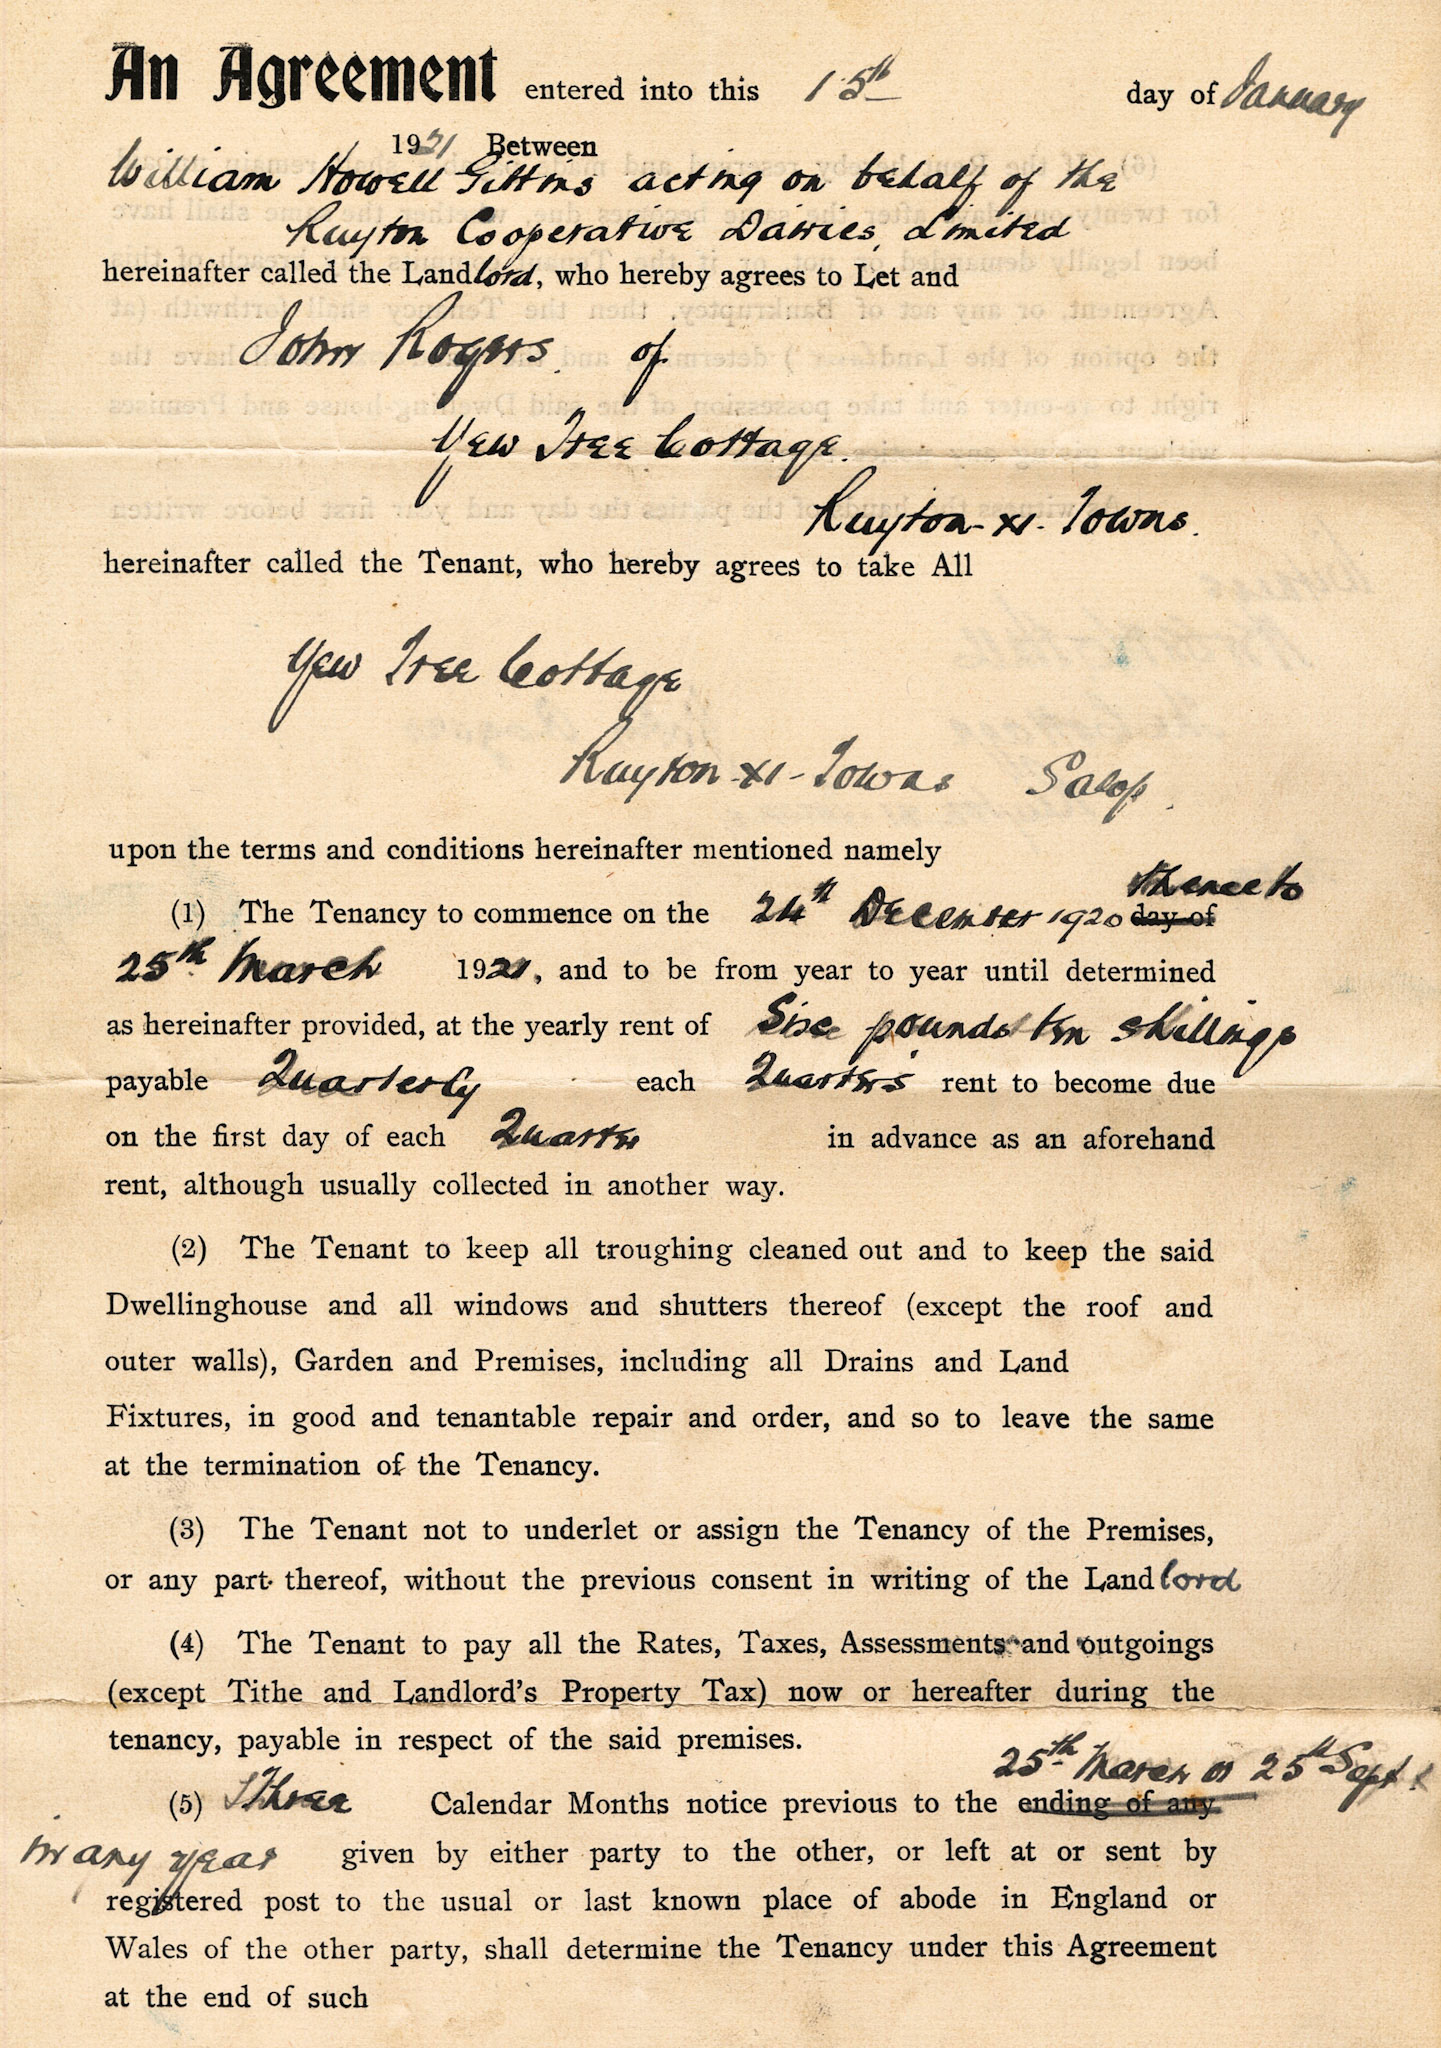 An Agreement entered into this 15th day of January
1921 Between
William Howell Gittins acting on behalf of the
Ruyton Cooperative Dairies, Limited
hereinafter called the Landlord, who hereby agrees to Let and
John Rogers of
Yew Tree Cottage.
Ruyton-XI-Towns.
hereinafter called the Tenant, who hereby agrees to take All
Yew Tree Cottage
Ruyton-XI-Towns Salop.
upon the terms and conditions hereinafter mentioned namely
thence to
(1) The Tenancy to commence on the 24th December 1920 day of
25th March 1921, and to be from year to year until determined
as hereinafter provided, at the yearly rent of Six pounds ten shillings
payable Quarterly each Quarter's rent to become due
on the first day of each Quarter in advance as an aforehand
rent, although usually collected in another way.
(2) The Tenant to keep all troughing cleaned out and to keep the said
Dwellinghouse and all windows and shutters thereof (except the roof and
outer walls), Garden and Premises, including all Drains and Land
Fixtures, in good and tenantable repair and order, and so to leave the same
at the termination of the Tenancy.
(3) The Tenant not to underlet or assign the Tenancy of the Premises,
or any part thereof, without the previous consent in writing of the Landlord
(4) The Tenant to pay all the Rates, Taxes, Assessments and outgoings
(except Tithe and Landlord's Property Tax) now or hereafter during the
tenancy, payable in respect of the said premises.
25th March or 25th Sept.
(5) Three Calendar Months notice previous to the ending of any
in any year given by either party to the other, or left at or sent by
registered post to the usual or last known place of abode in England or
Wales of the other party, shall determine the Tenancy under this Agreement
at the end of such